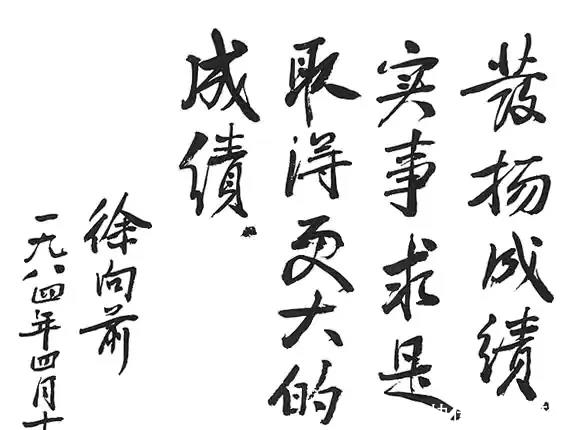 发扬成绩
实事求是
取得更大的
成绩.
徐向前
一九八四年四月十